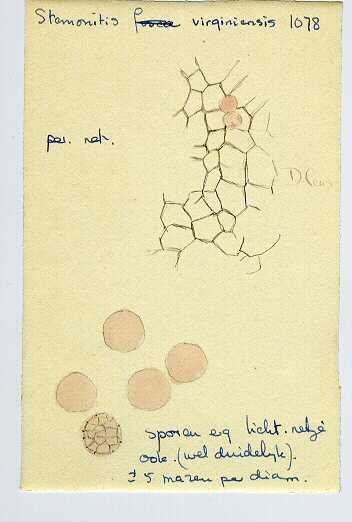 Stemonitis fusca virginiensis 1078
per. net.
sporen eq licht. netje
ook. (wel duidelyk).
± 5 mazen per diam.